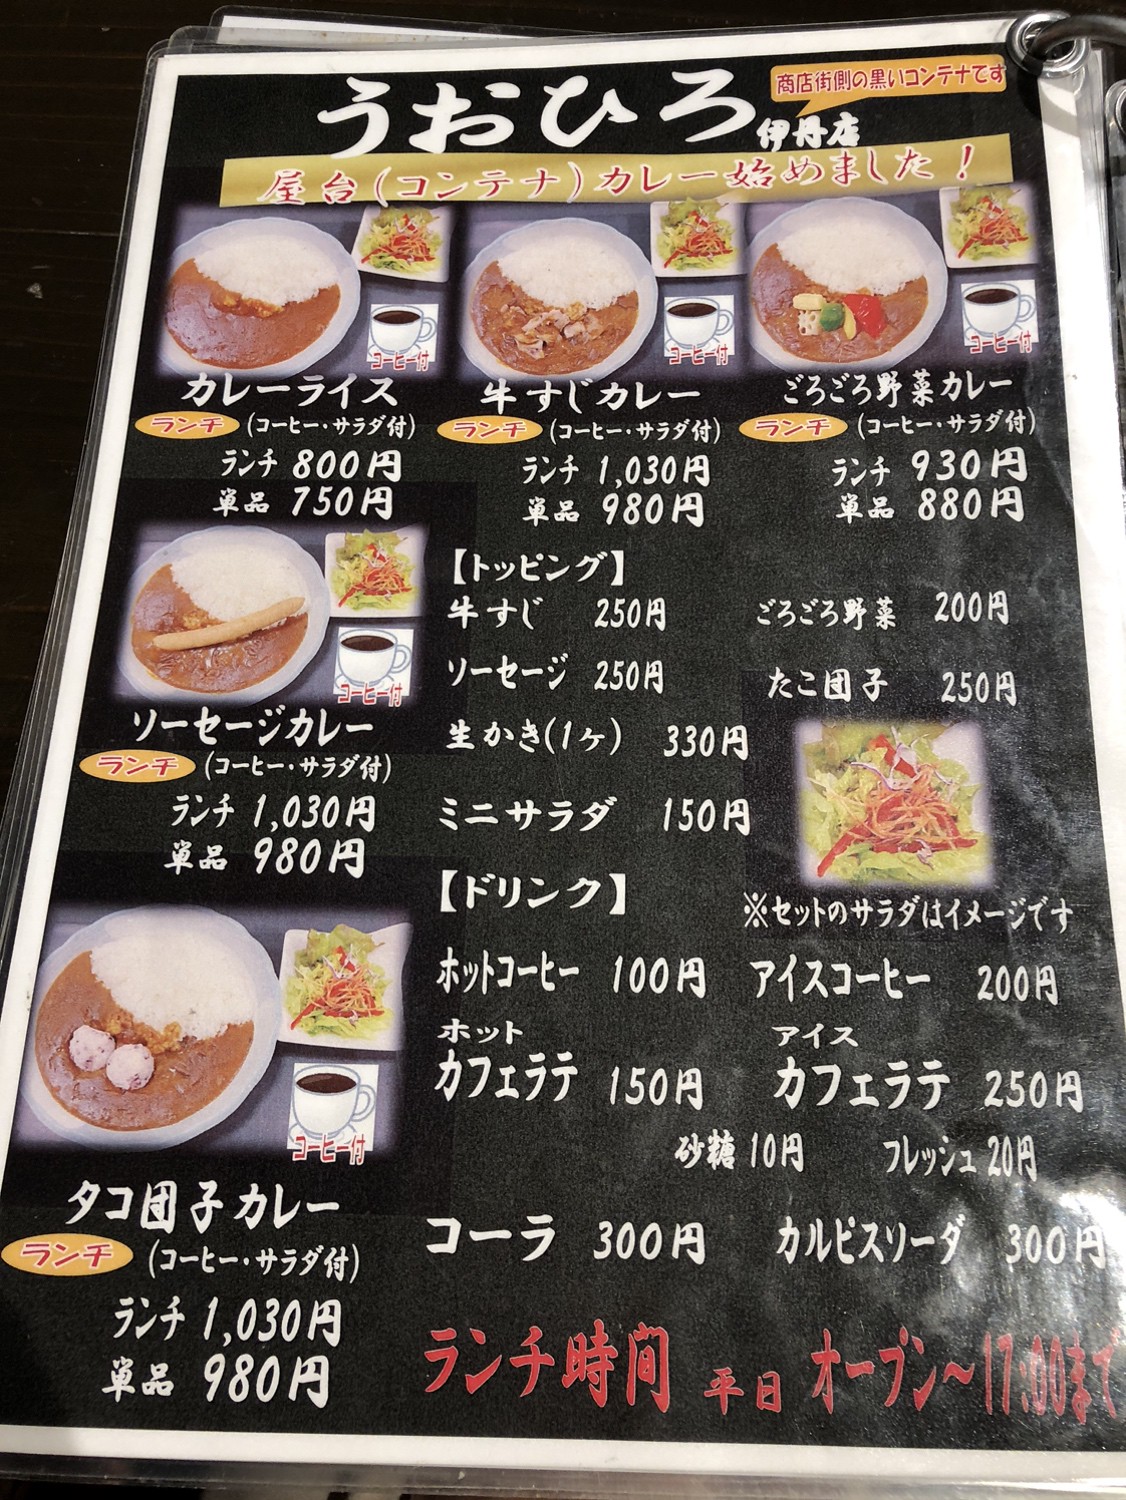 商店街側の黒いコンテナです
うおひろ 伊丹店
屋台(コンテナ)カレー始めました!
コーヒー付
コーヒー付
コーヒー付
カレーライス
ランチ (コーヒー・サラダ付)
ランチ 800円
単品 750円
牛すじカレー
ランチ (コーヒー・サラダ付)
ランチ 1,030円
単品 980円
ごろごろ野菜カレー
ランチ (コーヒー・サラダ付)
ランチ 930円
単品 880円
コーヒー付
ソーセージカレー
ランチ (コーヒー・サラダ付)
ランチ 1,030円
単品 980円
コーヒー付
タコ団子カレー
ランチ (コーヒー・サラダ付)
ランチ 1,030円
単品 980円
【トッピング】
牛すじ 250円 ごろごろ野菜 200円
ソーセージ 250円 たこ団子 250円
生かき(1ヶ) 330円
ミニサラダ 150円
※セットのサラダはイメージです
【ドリンク】
ホットコーヒー 100円 アイスコーヒー 200円
ホット アイス
カフェラテ 150円 カフェラテ 250円
砂糖 10円 フレッシュ 20円
コーラ 300円 カルピスソーダ 300円
ランチ時間 平日 オープン〜17:00まで